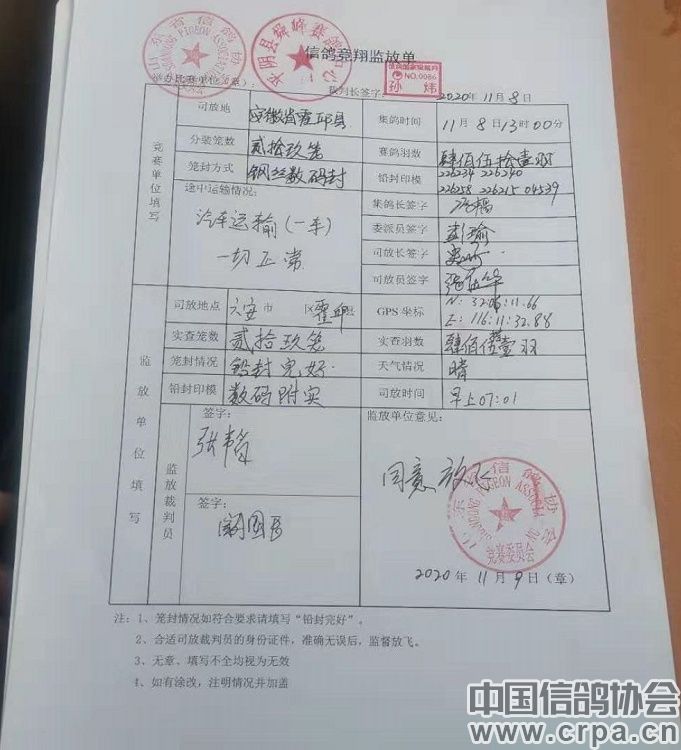 信鸽竞翔监放单
山东省信鸽协
SHANDONG PIGEON ASSOCIATION
平阴县舜峰赛鸽
信鸽国家级裁判
NO.0086
孙炜
裁判长签字：
2020年11月8日
竞赛单位填写
司放地 安徽省霍邱县 集鸽时间 11月8日13时00分
分装笼数 贰拾玖笼 赛鸽羽数 肆佰伍拾壹羽
笼封方式 钢丝数码封 铅封印模 226234 226240
226258 226215 04539
途中运输情况： 集鸽长签字
汽车运输(一车) 委派员签字
一切正常 司放长签字
司放员签字
监放单位填写
司放地点 六安市 区霍邱县 GPS 坐标 N：32:06:11.66
E：116:11:32.88
实查笼数 贰拾玖笼 实查羽数
笼封情况 铅封完好. 天气情况 晴
铅封印模 数码附实 司放时间 早上07:01
监放裁判员
签字： 监放单位意见：
张
签字：
同意放飞
SHANDONG PIGEON ASSOCIATION
竞赛委员会
2020年11月9日（章）
注：1、笼封情况如符合要求请填写“铅封完好”。
2、合适司放裁判员的身份证件，准确无误后，监督放飞。
3、无章、填写不全均视为无效
、如有涂改，注明情况并加盖
中国信鸽协会
www.crpa.cn